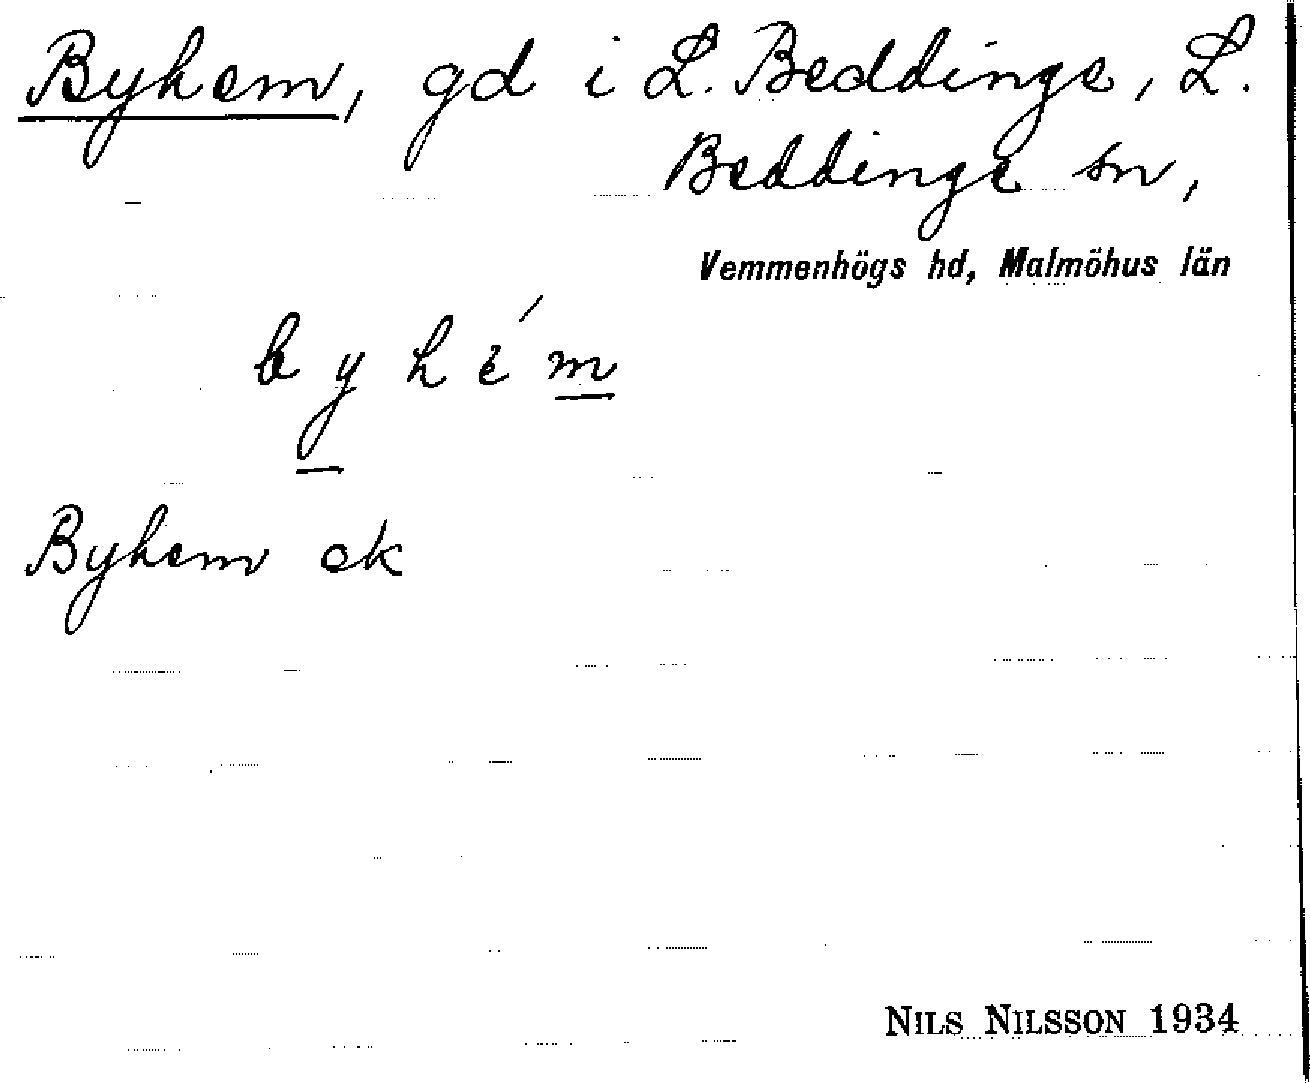 Byhem, gd i L. Beddinge, L.
Beddinge sn,
Vemmenhögs hd, Malmöhus län
byhém
Byhem ek
NILS NILSSON 1934